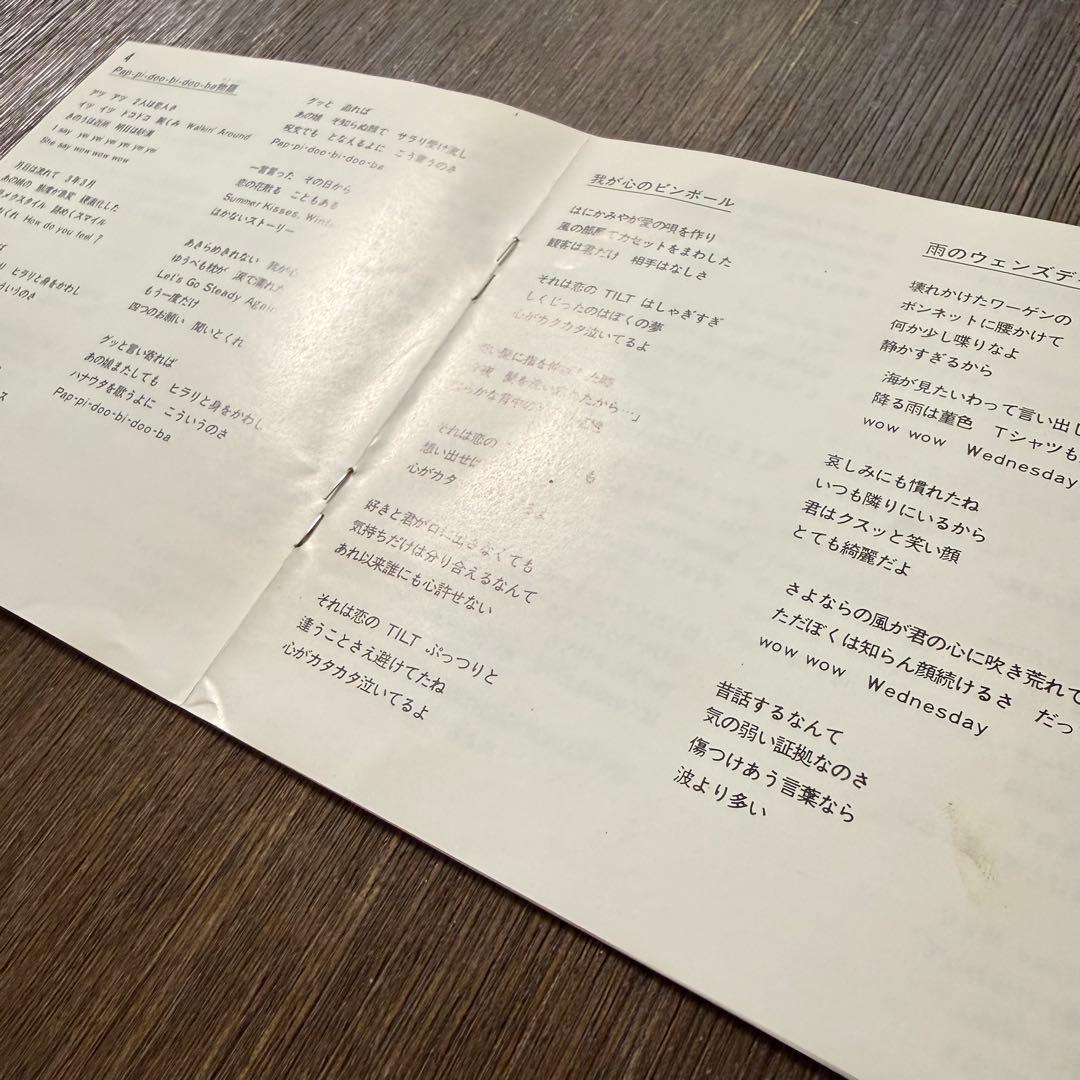 4
Pap-pi-doo-bi-doo-ba物語
アツ アツ 2人は恋人さ
イツ イツ ドコドコ 腕くみ Walkin' Around
I say yei yei yei yei yei
She say wow wow wow
月日は流れて 3年3月
スタイル 謎めくスマイル
おくれ How do you feel ?
ヒラリと身をかわし
ういうのさ
グッと 迫れば
あの娘 そ知らぬ顔で サラリ受け流し
呪文でも となえるよに こう言うのさ
Pap-pi-doo-bi-doo-ba
一言言った その日から
恋の花散る こともある
Summer Kisses, Winte
はかないストーリー
あきらめきれない 我が心
ゆうべも枕が 涙で濡れた
Let's Go Steady Again
もう一度だけ
四つのお願い 聞いとくれ
グッと言い寄れば
あの娘またしても ヒラリと身をかわし
ハナウタを歌うよに こういうのさ
Pap-pi-doo-bi-doo-ba
我が心のピンボール
はにかみやが愛の唄を作り
風の部屋でカセットをまわした
観客は君だけ 相手はなしさ
それは恋の TILT はしゃぎすぎ
しくじったのはぼくの夢
心がカタカタ泣いてるよ
髪に指を
髪を洗い たから…」
らかな背中の
それは恋の も
想い出せ
心がカタ るよ
好きと君が口に出さなくても
気持ちだけは分り合えるなんて
あれ以来誰にも心許せない
それは恋の TILT ぷっつりと
逢うことさえ避けてたね
心がカタカタ泣いてるよ
雨のウェンズデ
壊れかけたワーゲンの
ボンネットに腰かけて
何か少し喋りなよ
静かすぎるから
海が見たいわって言い出し
降る雨は菫色 Tシャツも
wow wow Wednesday
哀しみにも慣れたね
いつも隣りにいるから
君はクスッと笑い顔
とても綺麗だよ
さよならの風が君の心に吹き荒れて
ただぼくは知らん顔続けるさ だっ
wow wow Wednesday
昔話するなんて
気の弱い証拠なのさ
傷つけあう言葉なら
波より多い